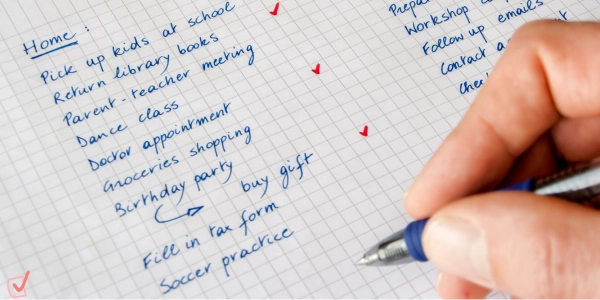 Home :
Pick up kids at school
Return library books
Parent-teacher meeting
Dance class
Doctor appointment
Groceries shopping
Birthday party
buy gift
Fill in tax form
Soccer practice
Workshop
Follow up emails
Contact a